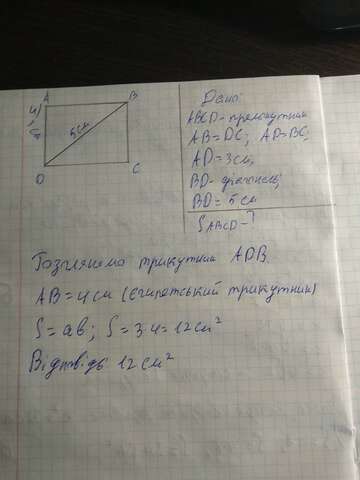 A B
5см
D C
Дано:
ABCD - прямокутник
AB = DC; AD = BC;
AD = 3 см;
BD - діагональ;
BD = 5 см
SABCD - ?
Розглянемо трикутник ADB.
AB = 4 см (Єгипетський трикутник)
S = ab; S = 3·4 = 12 см²
Відповідь 12 см²